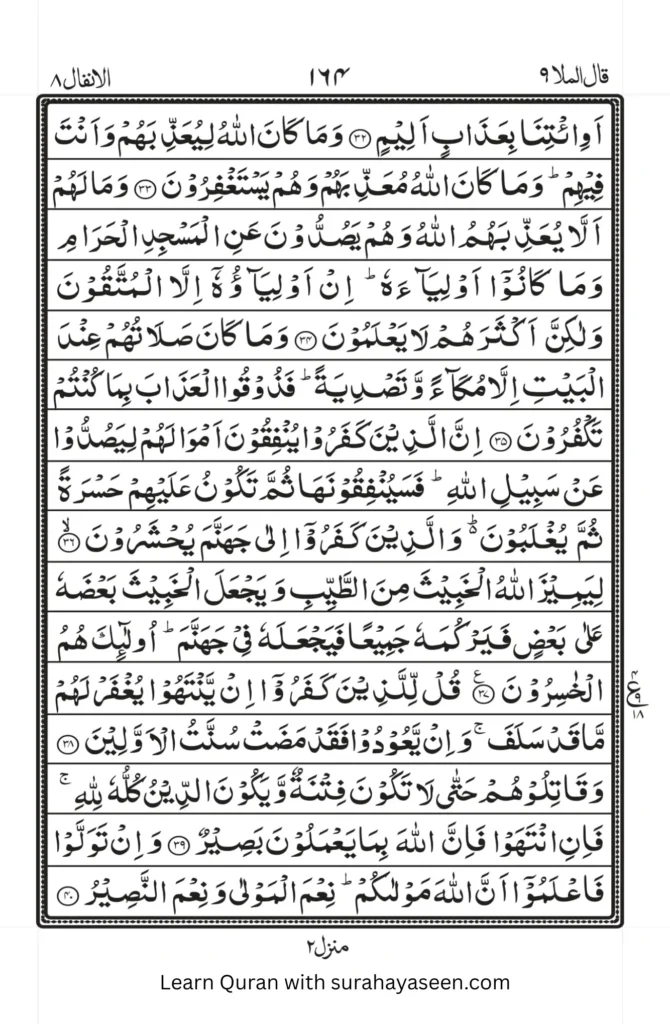 الانفال ۸ ۱۶۴ قال الملا ۹
اَوِائۡتِنَا بِعَذَابٍ اَلِيۡمٍ ﴿۳۲﴾ وَمَا كَانَ اللّٰهُ لِيُعَذِّبَهُمۡ وَاَنۡتَ
فِيۡهِمۡ‌ؕ وَمَا كَانَ اللّٰهُ مُعَذِّبَهُمۡ وَهُمۡ يَسۡتَغۡفِرُوۡنَ ﴿۳۳﴾ وَمَا لَهُمۡ
اَلَّا يُعَذِّبَهُمُ اللّٰهُ وَهُمۡ يَصُدُّوۡنَ عَنِ الۡمَسۡجِدِ الۡحَرَامِ
وَمَا كَانُوۡۤا اَوۡلِيَآءَهٗ‌ؕ اِنۡ اَوۡلِيَآؤُهٗۤ اِلَّا الۡمُتَّقُوۡنَ
وَلٰـكِنَّ اَكۡثَرَهُمۡ لَا يَعۡلَمُوۡنَ ﴿۳۴﴾ وَمَا كَانَ صَلَاتُهُمۡ عِنۡدَ
الۡبَيۡتِ اِلَّا مُكَآءً وَّتَصۡدِيَةً‌ؕ فَذُوۡقُوا الۡعَذَابَ بِمَا كُنۡتُمۡ
تَكۡفُرُوۡنَ ﴿۳۵﴾ اِنَّ الَّذِيۡنَ كَفَرُوۡا يُنۡفِقُوۡنَ اَمۡوَالَهُمۡ لِيَصُدُّوۡا
عَنۡ سَبِيۡلِ اللّٰهِ‌ؕ فَسَيُنۡفِقُوۡنَهَا ثُمَّ تَكُوۡنُ عَلَيۡهِمۡ حَسۡرَةً
ثُمَّ يُغۡلَبُوۡنَ ؕ وَالَّذِيۡنَ كَفَرُوۡۤا اِلٰى جَهَنَّمَ يُحۡشَرُوۡنَ ۙ‏﴿۳۶﴾
لِيَمِيۡزَ اللّٰهُ الۡخَبِيۡثَ مِنَ الطَّيِّبِ وَيَجۡعَلَ الۡخَبِيۡثَ بَعۡضَهٗ
عَلٰى بَعۡضٍ فَيَرۡكُمَهٗ جَمِيۡعًا فَيَجۡعَلَهٗ فِىۡ جَهَنَّمَ‌ؕ اُولٰٓٮِٕكَ هُمُ
الۡخٰسِرُوۡنَ ﴿۳۷﴾ ع قُلْ لِّلَّذِيۡنَ كَفَرُوۡۤا اِنۡ يَّنۡتَهُوۡا يُغۡفَرۡ لَهُمۡ
مَّا قَدۡ سَلَفَ‌ۚ وَاِنۡ يَّعُوۡدُوۡا فَقَدۡ مَضَتۡ سُنَّتُ الۡاَوَّلِيۡنَ ﴿۳۸﴾
وَقَاتِلُوۡهُمۡ حَتّٰى لَا تَكُوۡنَ فِتۡنَةٌ وَّيَكُوۡنَ الدِّيۡنُ كُلُّهٗ لِلّٰهِ‌ۚ
فَاِنِ انْـتَهَوۡا فَاِنَّ اللّٰهَ بِمَا يَعۡمَلُوۡنَ بَصِيۡرٌ ﴿۳۹﴾ وَاِنۡ تَوَلَّوۡا
فَاعۡلَمُوۡۤا اَنَّ اللّٰهَ مَوۡلٰٮكُمۡ‌ؕ نِعۡمَ الۡمَوۡلٰى وَنِعۡمَ النَّصِيۡرُ ﴿۴۰﴾
ع ۹ ۱۸
منزل ۲
Learn Quran with surahayaseen.com